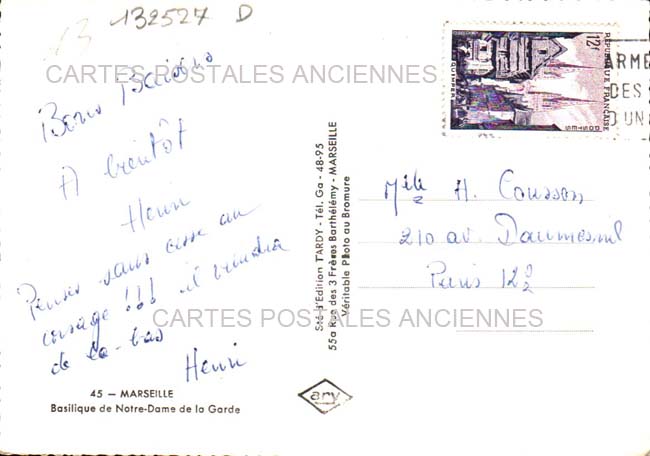 132527 D
CARTES POSTALES ANCIENNES
Bons Baisers
A bientôt
Henri
Pensez sans cesse au
corsage !!! il viendra
de là-bas
Henri
45 — MARSEILLE
Basilique de Notre-Dame de la Garde
Sté d'Edition TARDY - Tél. Ga - 48-95
55a Rue des 3 Frères Barthélémy - MARSEILLE
Véritable Photo au Bromure
ary
12f
REPUBLIQUE FRANÇAISE
QUIMPER
POSTES
ARMÉ
DES
D'UN
Mlle H. Cousson
210 av. Daumesnil
Paris 12e
CARTES POSTALES ANCIENNES